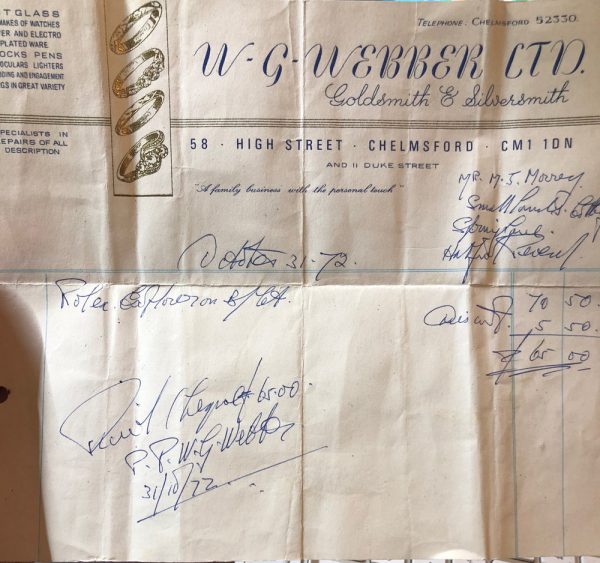 TGLASS
MAKES OF WATCHES
ER AND ELECTRO
PLATED WARE
OCKS PENS
OCULARS LIGHTERS
DING AND ENGAGEMENT
GS IN GREAT VARIETY
SPECIALISTS IN
REPAIRS OF ALL
DESCRIPTION
TELEPHONE: CHELMSFORD 52330.
W-G-WEBBER LTD.
Goldsmith & Silversmith
58 · HIGH STREET · CHELMSFORD · CM1 1DN
AND 11 DUKE STREET
"A family business with the personal touch"
Mr. M. J.
October 31-72.
Rolex Explorer on
70 50.
Discount. 5 50.
£ 65 00
Cheque £65.00.
P.P. W.G. Webber
31/10/72